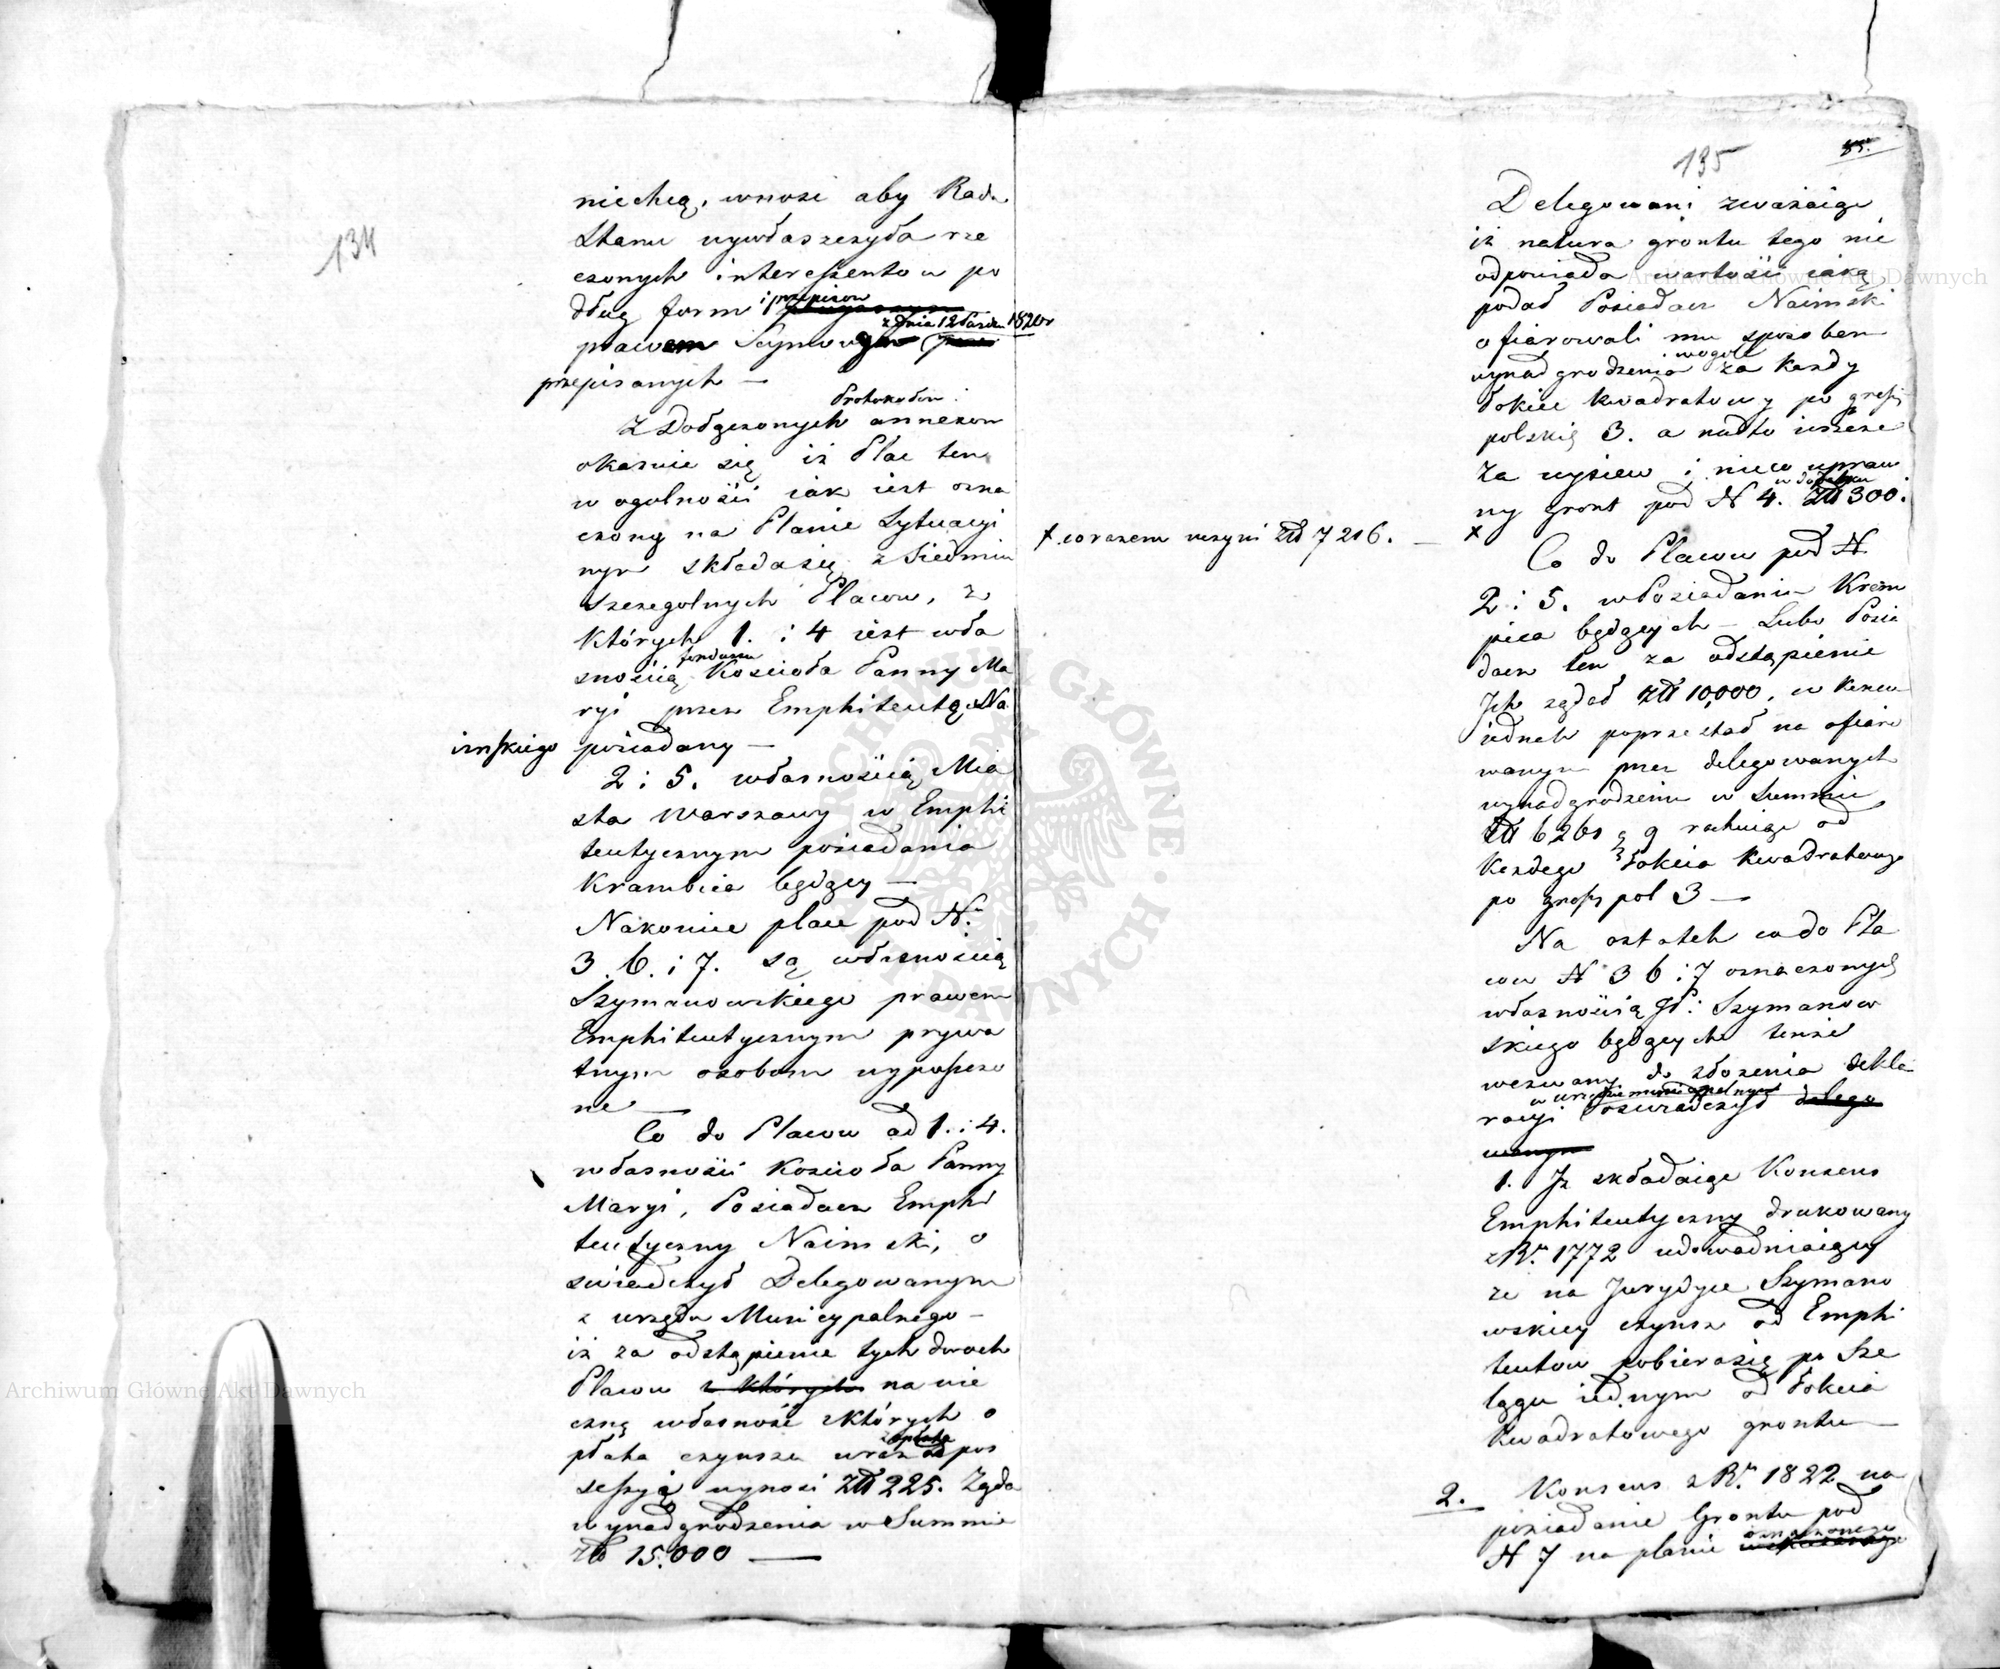 134
niechcą, wnosi aby Rada
Stanu wywłaszczyła rze
czonych interessentow po
dług form i przepisow
prawem Seymowym z dnia
przepisanych —
Z Dołączonych Protokułow i annexow
okazuie się iż Plac ten
w ogulności iak iest ozna
czony na Planie Sytuacyi
nym składa się z Siedmiu
szczegolnych Placow, z
których 1. i 4 iest wła
snością funduszu Kościoła Panny Ma
ryi przez Emphiteutę Na
imskiego posiadany —
2 i 5. własnością Mia
sta Warszawy w Emphi
teutycznym posiadaniu
Krambica będący —
Nakoniec place pod Nr
3. 6. i 7. są własnością
Szymanowskiego prawem
Emphiteutycznym prywa
tnym osobom wypuszczo
ne —
Co do Placow ad 1. i 4.
własności Kościoła Panny
Maryi, Posiadacz Emphi
teutyczny Naimski, o
swiadczył Delegowanym
z urzędu Municypalnego —
iż za odstąpienie tych dwoch
Placow z których na wie
czną własność z których o
płata czynszu wraz zapłatą za pos
sessyą wynosi Złł 225. Żąda
wynadgrodzenia w Summie
Złł 15.000 —
135
85.
Delegowani zważaiąc
iż natura gruntu tego nie
odpowiada wartości iaką
podał Posiadacz Naimski
ofiarowali mu sposobem
wynadgrodzenia w ogole za każdy
łokieć kwadratowy po grosz
polskie 3. a nadto ieszcze
za wysiew i nieco upraw
ny grunt pod N 4. w dodatku Złł 300.
x
x co razem uczyni Złł 7216. —
Co do Placow pod N
2 i 5. w Posiadaniu Kram
pica będących — Lubo Posia
dacz ten za odstąpienie
Ich żądał Złł 10,000, w końcu
iednak poprzestał na ofiaro
wanym przez delegowanych
wynadgrodzeniu w Summie
Złł 6261 g 9 rachuiąc od
każdego łokcia kwadratowego
po grosz pol 3 —
Na ostatek co do Pla
cow N 3 6 i 7 oznaczonych
własnością JP: Szymanow
skiego będących tenże
wezwany do złożenia dekla
racyi w urzędzie municypalnym oswiadczył delego
wanym
1. Iż składaiąc Konsens
Emphiteutyczny drukowany
z Ru 1772 udowadniaiący
że na Jurydyce Szymano
wskiey czynsz od Emphi
teutow pobiera się po Sze
lągu iednym od łokcia
kwadratowego gruntu —
2. Konsens z Ru 1822 na
posiadanie Gruntu pod
N 7 na planie oznaczonego
Archiwum Główne Akt Dawnych
Archiwum Główne Akt Dawnych
ARCHIWUM GŁÓWNE AKT DAWNYCH